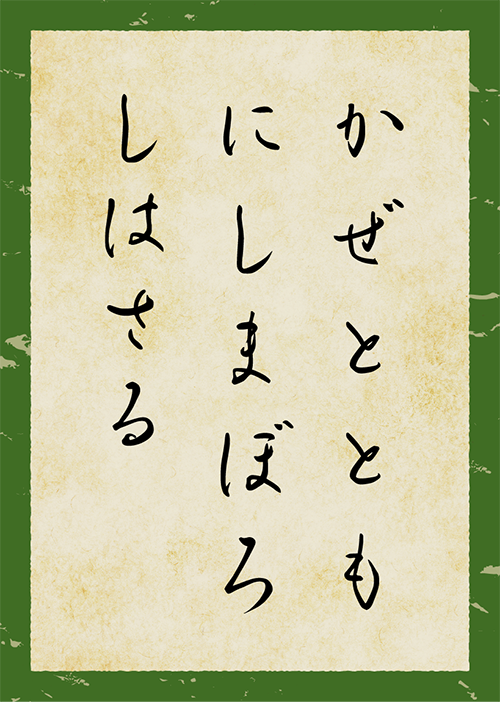 かぜととも
にしまぼろ
しはさる